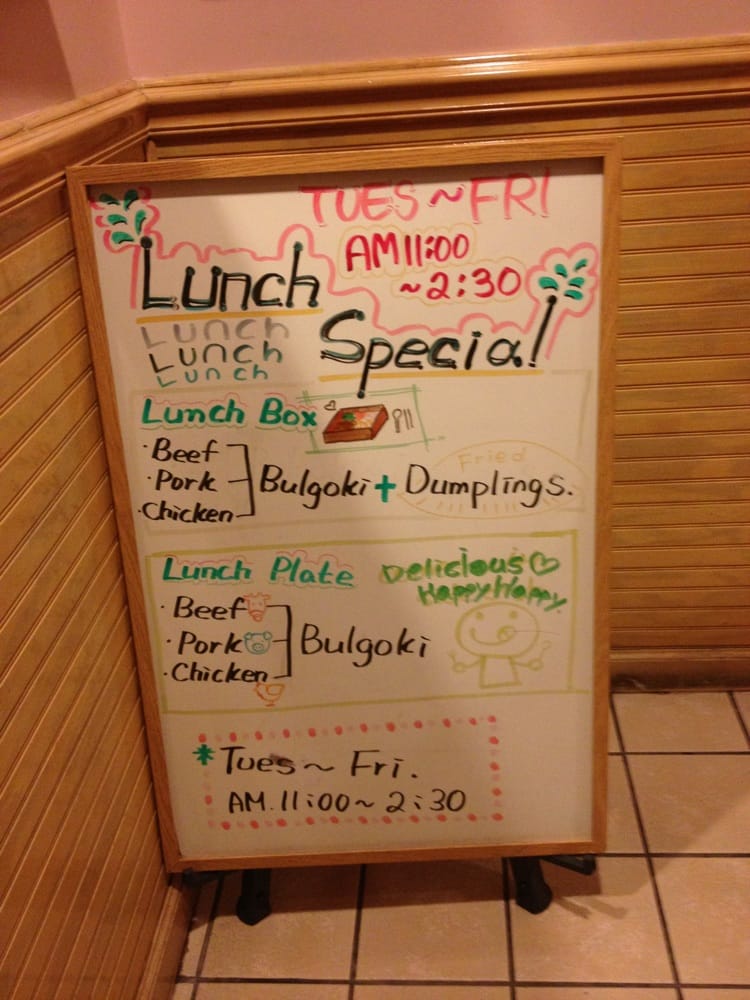 TUES~FRI
AM11:00
~2:30
Lunch
Special
Lunch
Lunch
Lunch
Lunch Box
· Beef
· Pork
· Chicken
Bulgoki + Dumplings.
Fried
Lunch Plate
Delicious♡
Happy Happy
· Beef
· Pork
· Chicken
Bulgoki
* Tues~ Fri.
AM. 11:00~ 2:30